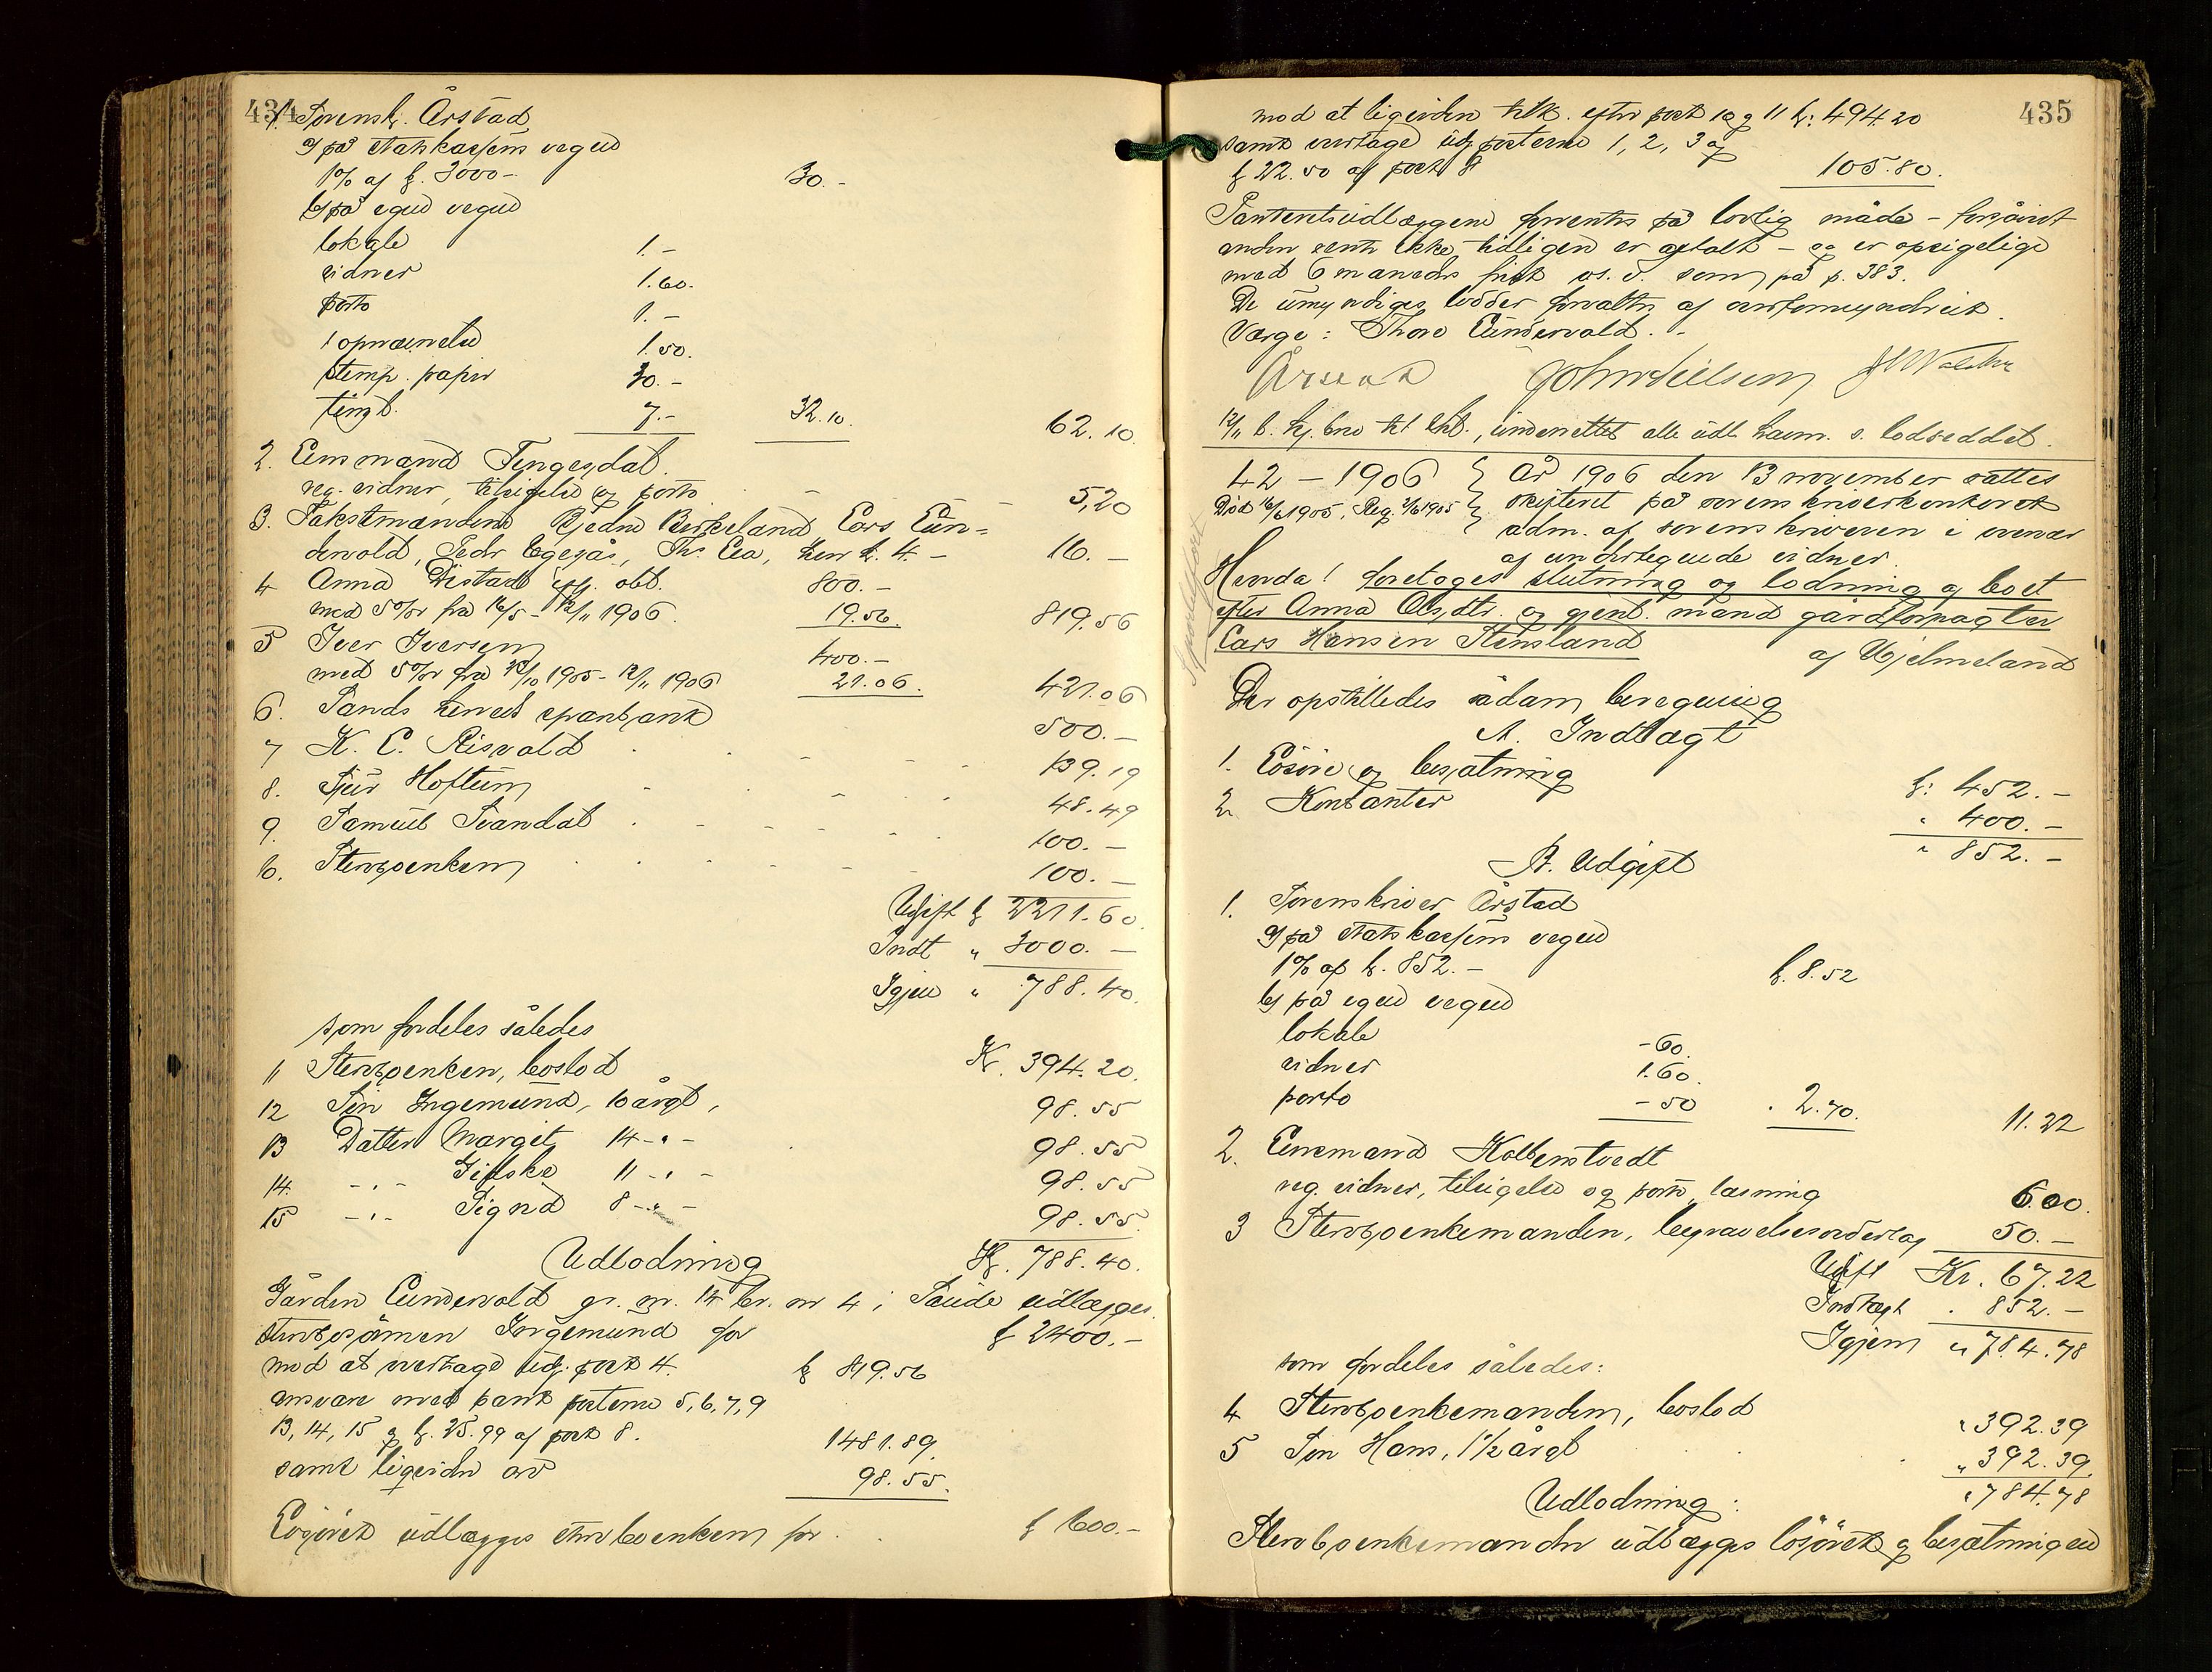 434
1. Sorensk. Årstad
a) på statskassens vegne
1% af k. 3000.- 30.-
b) på egne vegne
lokale 1.-
vidner 1.60.
porto 1.-
1 opnævnelse 1.50.
stemp. papir 20.-
tingl. 7.- 32.10. 62.10.
2. Lensmand Tengesdal.
reg. vidner, tilsigelse og porto - - 5,20
3. Takstmændene Bjedne Birkeland Lars Lun-
dervold, Peder Egesjås, Ths. Lea, hver k. 4.- 16.-
4 Anna Østabø iflg. obl. 800.-
med 5% fra 16/5 - 12/11 1906. 19.56. 819.56
5 Iver Iversen 400.-
med 5% fra 23/10 1905 - 12/11 1906 21.06. 421.06
6. Sands herreds sparebank 500.-
7 K. L. Risvold 139.19
8. Sjur Hoftun 48.49
9. Samuel Svandal 100.-
10. Sterboenken 100.-
Udgift k 2211.60
Indt „ 3000.-
Igjen „ 788.40.
som fordeles således
11 Sterboenken, boslod K. 394.20.
12 Søn Ingemund, 16 årgl, 98.55
13 Datter Margit 14-„- 98.55
14. -„- Giftske 11-„- 98.55
15 -„- Signe 8-„- 98.55.
Udlodning K. 788.40.
Gården Lundervold gr. nr. 14 br. nr 4 i Saude udlægges
sterbosønnen Ingemund for k 2400.-
mod at overtage udg. post 4. k 819.56
ansvare med pant posterne 5, 6, 7, 9
13, 14, 15 og k. 25.99 af post 8. 1481.89.
samt ligeiden arv 98.55.
Løsøret udlægges sterboenken for . . k 600.-
435
mod at ligeiden tilk. efter post 10 og 11 k: 494.20
samt overtage udg. posterne 1, 2, 3 og
k 22.50 af post 8 105.80.
Panteretsudlæggene forrentes på lovlig måde - forsåvidt
anden rente ikke tidligere er aftalt - og er opsigelige
med 6 måneders frist o.s.v. som på p. 383.
De umyndiges lodder forvaltes af overformynderiet.
Værge: Thore Lundervold. -
Årstad John Nielsen
12/11 underrettet alle udl. havn. s. lodseddel.
42 - 1906 } År 1906 den 13 november sattes
Død 16/6 1905, Reg. 21/6 1905 } skifteret på sorenskriverkontoret
adm. af sorenskriveren i overvær
af undertegnede vidner.
Hvorda! foretoges slutning og lodning af boet
efter Anna Olsdtr. og gjenl. mand gårdforpagter
Lars Hansen Stensland af Hjelmeland
Der opstilledes sådan beregning
A. Indtægt
1. Løsøre og besætning k: 452.-
2. Kontanter „ 400.-
„ 852.-
B. Udgift
1. Sorenskriver Årstad
a) på statskassens vegne
1% af k. 852.- k. 8.52
b) på egne vegne
lokale -60.
vidner 1.60.
porto -50 . 2.70. 11.22
2. Lensmand Kolbenstvedt
reg. vidner, tilsigelse og porto, læsning 6.00.
3 Sterboenkemanden, begravelsesvederlag 50.-
Udgift Kr. 67.22
Indtægt . 852.-
Igjen „ 784.78
som fordeles således:
4 Sterboenkemanden, boslod „ 392.39
5 Søn Hans, 1½ årgl „ 392.39.
Udlodning: „ 784.78
Sterboenkemanden udlægges løsøret og besætningen